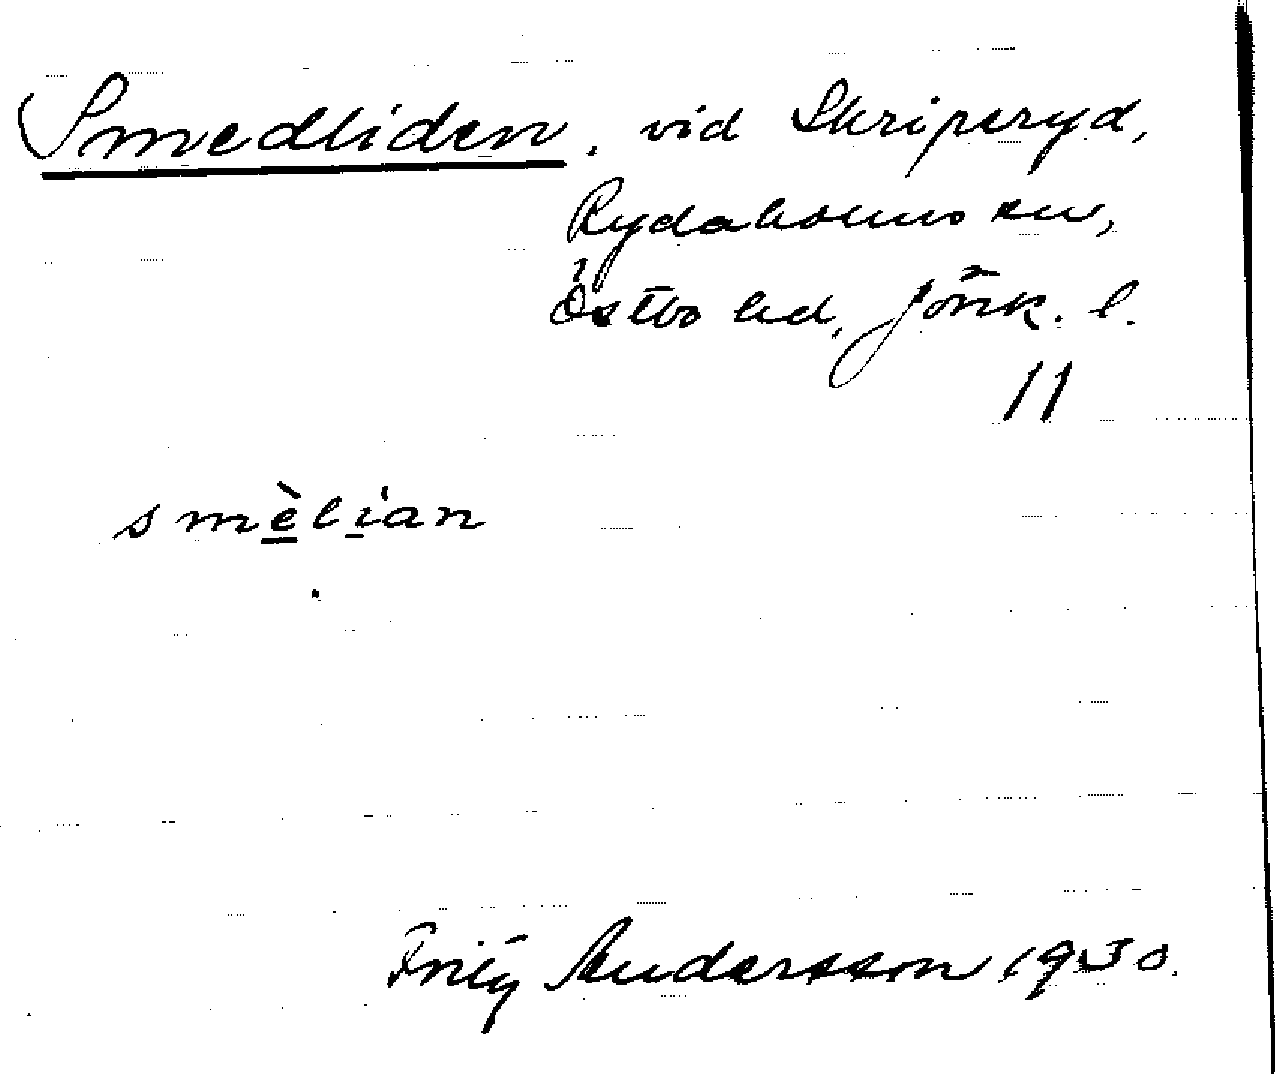 Smedliden, vid Skriperyd,
Rydaholms sn,
Östbo hd, Jönk. l.
11
smèlían
Fritz Andersson 1930.